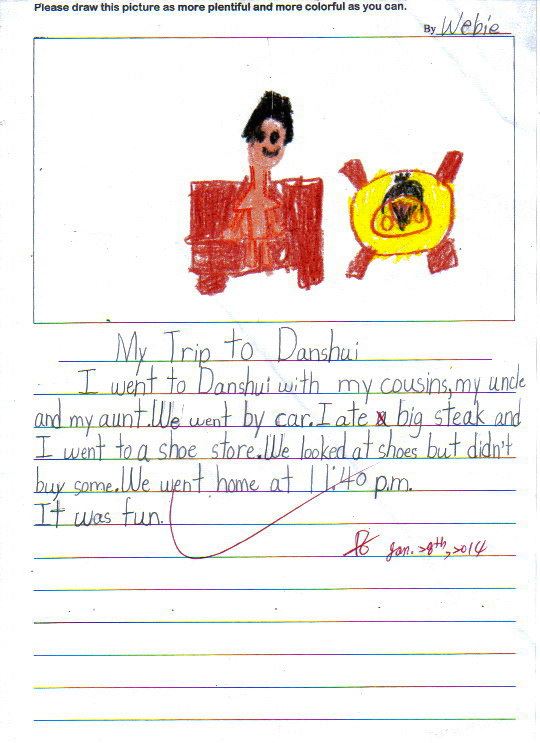 Please draw this picture as more plentiful and more colorful as you can.
By Webie
My Trip to Danshui
I went to Danshui with my cousins, my uncle
and my aunt. We went by car. I ate a big steak and
I went to a shoe store. We looked at shoes but didn't
buy some. We went home at 11:40 p.m.
It was fun.
Jan. 28th, 2014